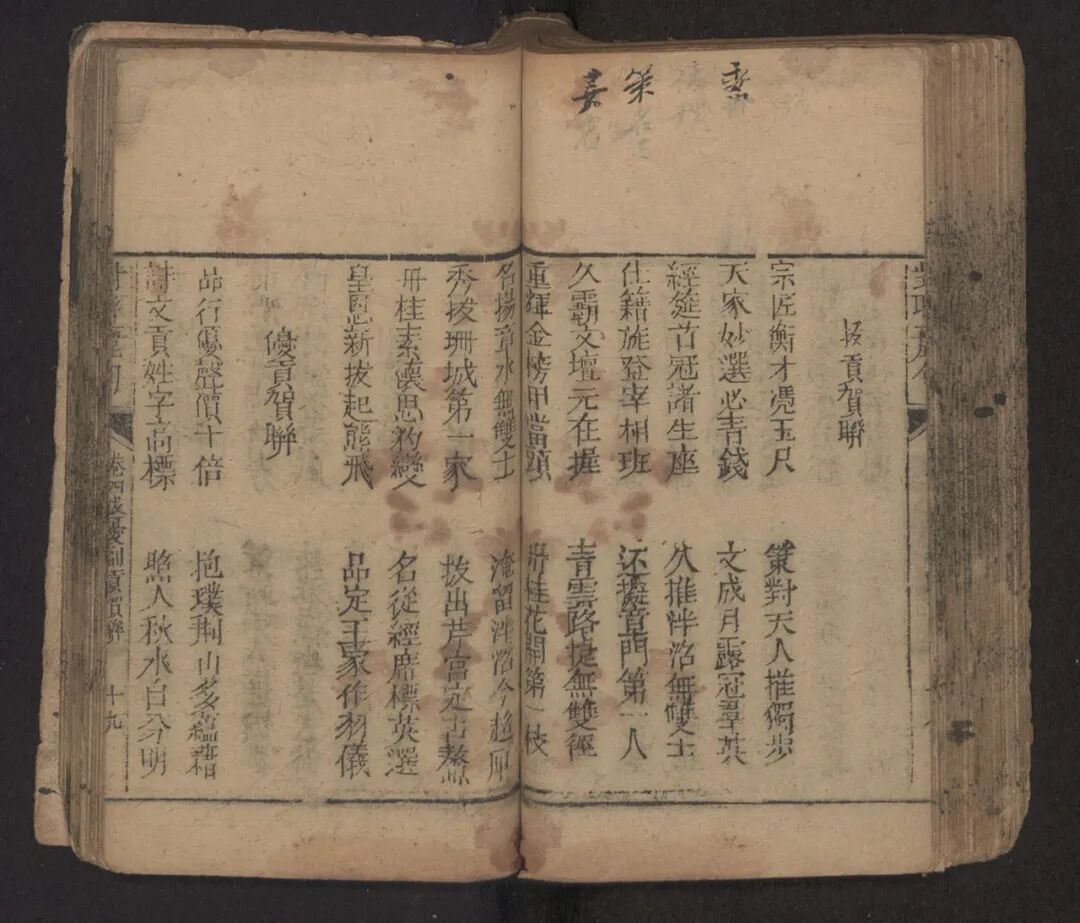 策
拔貢賀聯
宗匠衡才憑玉尺 策對天人推獨步
天家妙選必青錢 文成月露冠羣英
經筵首冠諸生座 久推泮沼無雙士
仕籍旋登宰相班 还擬章門第一人
久霸文壇元在握 青雲路捷無雙徑
重輝金榜甲擋頭 丹桂花開第一枝
名揚章水無雙士 淹留泮沼今趨
秀拔珊城第一家 拔出芹宮定占鰲
丹桂素懷思豹變 名從經席標英選
皇恩新拔起熊飛 品定王家作羽儀
優貢賀聯
品行優聲價十倍 抱璞荆山多蘊藉
詩文貢姓字高標 照人秋水自分明
卷四拔優副貢賀聯 十九